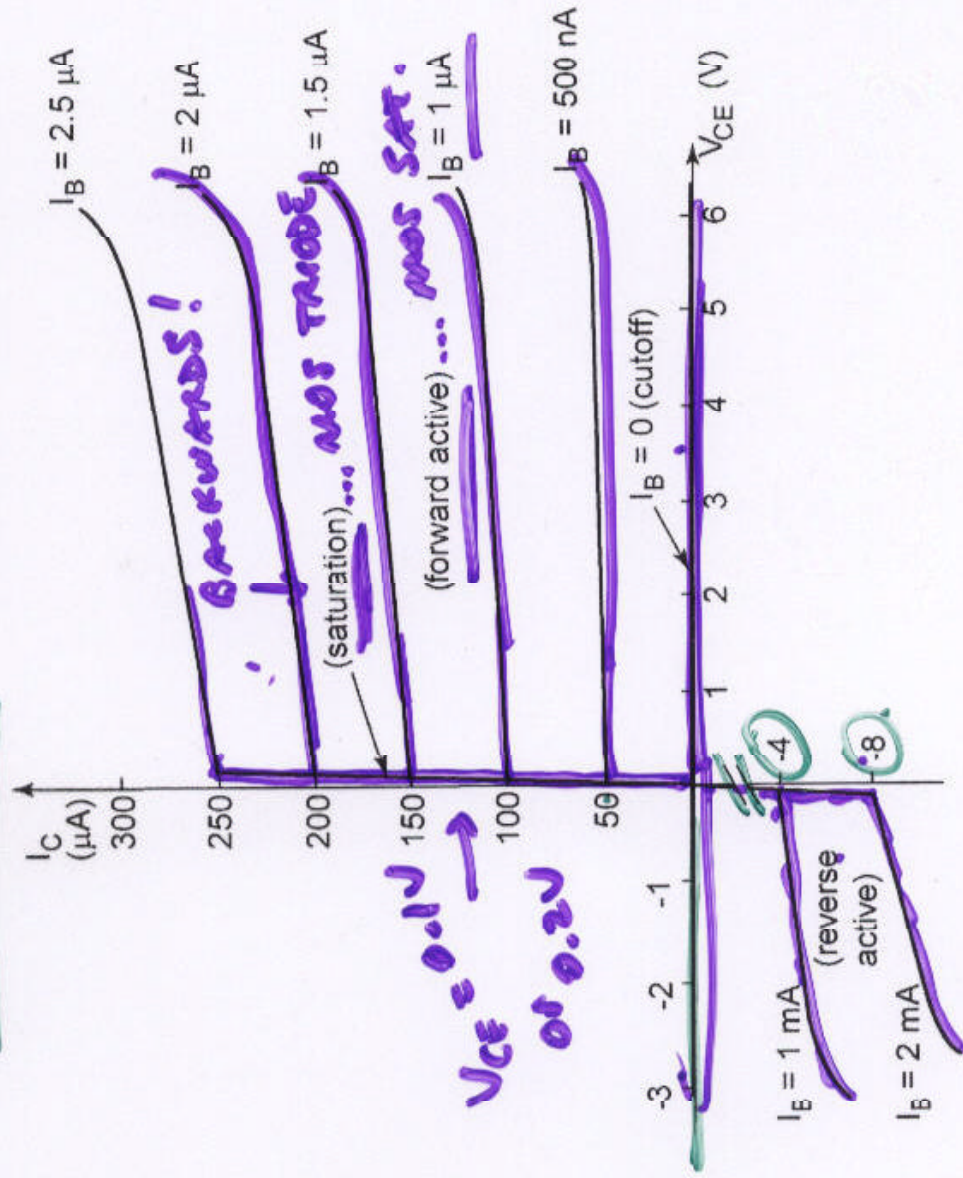 I_C
(μA)
300
250
200
150
100
50
-4
-8
I_B = 2.5 μA
I_B = 2 μA
I_B = 1.5 μA
I_B = 1 μA
I_B = 500 nA
BACKWARDS!
(saturation)... MOS TRIODE
(forward active)... MOS SAT.
V_CE = 0.1V
or 0.2V
I_B = 0 (cutoff)
-3 -2 -1 1 2 3 4 5 6
V_CE (V)
I_B = 1 mA
(reverse
active)
I_B = 2 mA